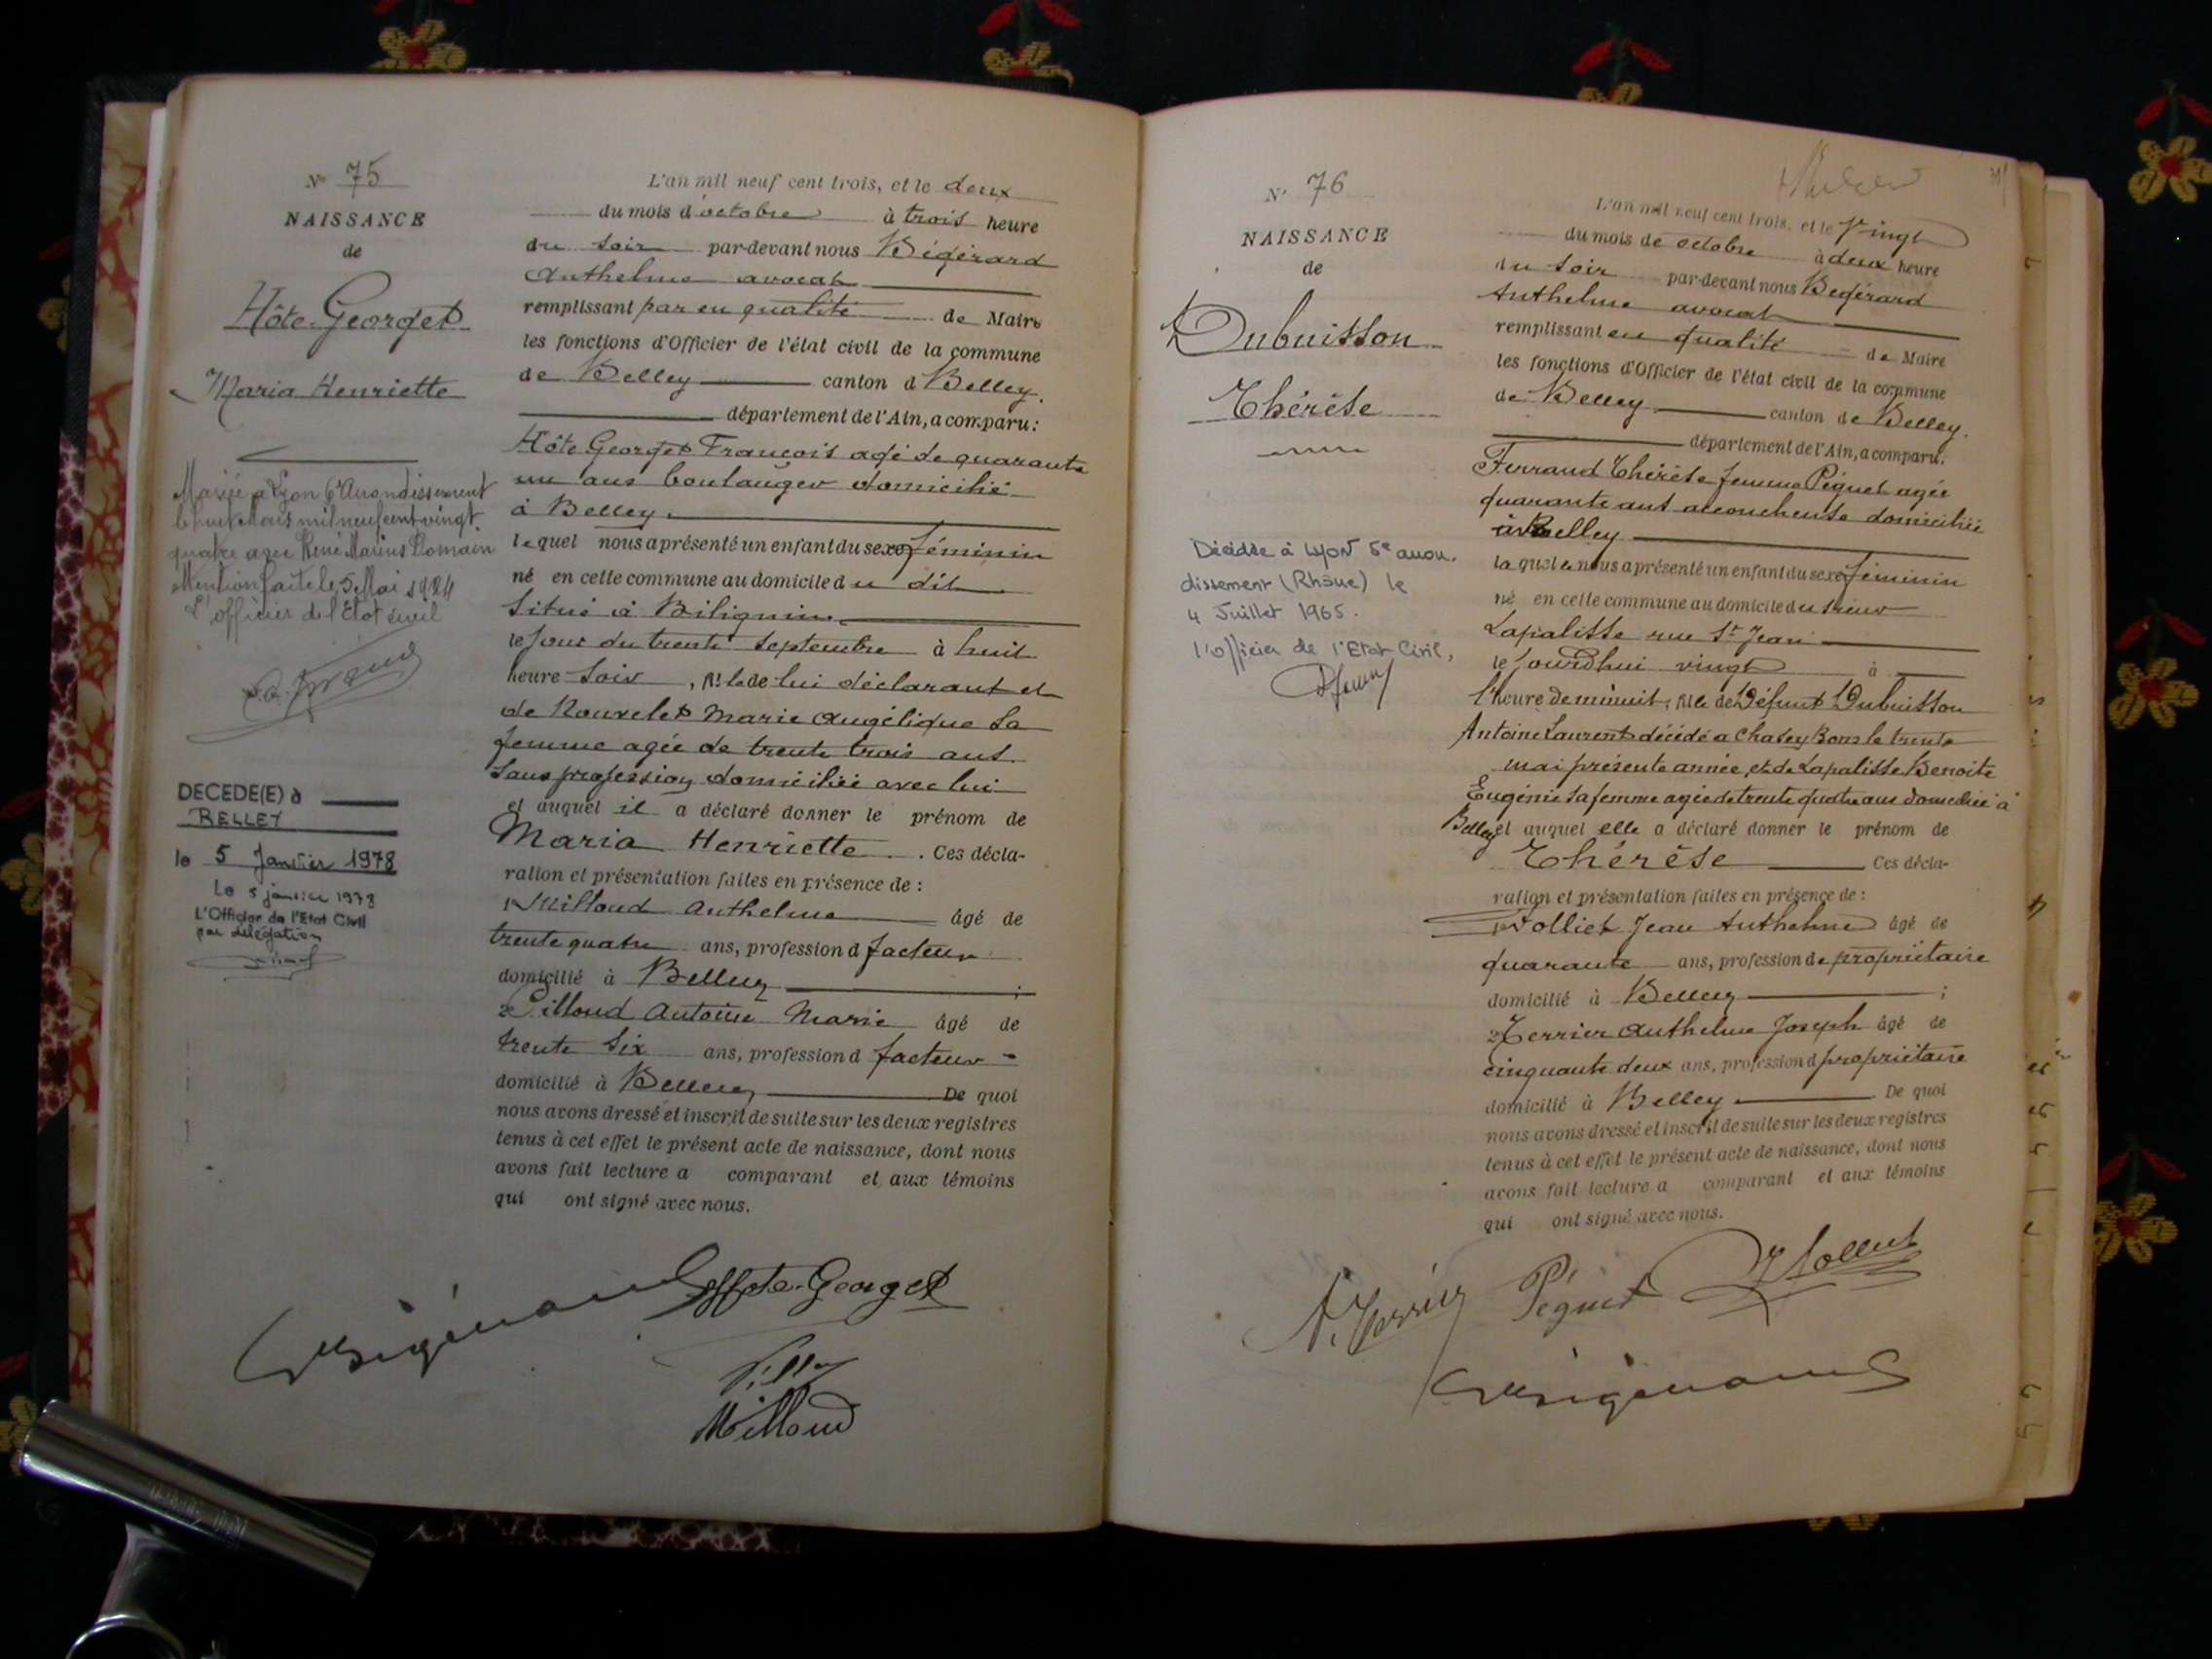 Nº 75
NAISSANCE
de
Hôte-Georget
Maria Henriette
Mariée à Lyon 6e Arrondissement
le huit Mars mil neuf cent vingt
quatre avec René Marius Romain
Mention faite le 5 Mai 1924
L'officier de l'État civil
DECEDE(E) à
BELLEY
le 5 Janvier 1978
Le 5 janvier 1978
L'Officier de l'Etat Civil
par délégation
L'an mil neuf cent trois, et le deux
du mois d'octobre à trois heure
du soir par-devant nous Bégérard
Anthelme avocat
remplissant par en qualité de Maire
les fonctions d'Officier de l'état civil de la commune
de Belley canton d Belley.
département de l'Ain, a comparu :
Hôte Georget François agé de quarante
un ans boulanger domicilié
à Belley
lequel nous a présenté un enfant du sexe féminin
né en cette commune au domicile d u dit
situé à Bilignin
le jour du trente septembre à huit
heure soir, fille de lui déclarant et
de Rouvelet Marie Angélique sa
femme agée de trente trois ans
sans profession domiciliée avec lui
et auquel il a déclaré donner le prénom de
Maria Henriette. Ces décla-
ration et présentation faites en présence de :
1º Milloud Anthelme âgé de
trente quatre ans, profession d facteur
domicilié à Belley ;
2º Pilloud Antoine Marie âgé de
trente six ans, profession d facteur
domicilié à Belley De quoi
nous avons dressé et inscrit de suite sur les deux registres
tenus à cet effet le présent acte de naissance, dont nous
avons fait lecture a comparant et aux témoins
qui ont signé avec nous.
Hote-Georget
Milloud
Nº 76
NAISSANCE
de
Dubuisson
Thérèse
Décédée à Lyon 5e arron.
dissement (Rhône) le
4 Juillet 1965.
l'Officier de l'Etat Civil,
L'an mil neuf cent trois, et le Vingt
du mois de octobre à deux heure
du soir par-devant nous Bégérard
Anthelme avocat
remplissant en qualité de Maire
les fonctions d'Officier de l'état civil de la commune
de Belley canton de Belley.
département de l'Ain, a comparu :
Ferraud Thérèse femme Péguet agée
quarante ans accoucheuse domiciliée
à Belley
laquelle nous a présenté un enfant du sexe féminin
né en cette commune au domicile du sieur
Lapalisse rue St Jean
le jourd'hui vingt à
l'heure de minuit, fille de Défunt Dubuisson
Antoine Laurent décédé à Chazey Bons le trente
mai présente année, et de Lapalisse Benoite
Eugénie sa femme agée de trente quatre ans domiciliée à
Belley et auquel elle a déclaré donner le prénom de
Thérèse Ces décla-
ration et présentation faites en présence de :
1º Folliet Jean Anthelme âgé de
quarante ans, profession de propriétaire
domicilié à Belley ;
2º Terrier Anthelme Joseph âgé de
cinquante deux ans, profession d propriétaire
domicilié à Belley De quoi
nous avons dressé et inscrit de suite sur les deux registres
tenus à cet effet le présent acte de naissance, dont nous
avons fait lecture a comparant et aux témoins
qui ont signé avec nous.
A. Terrier Péguet Folliet